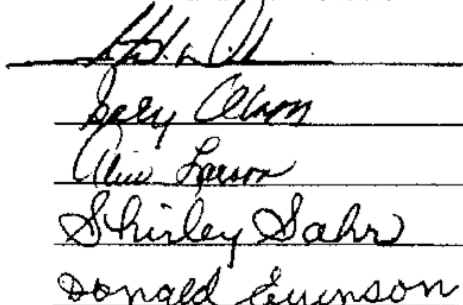 Gary Olson
Alice Larson
Shirley Sahr
Donald Evenson